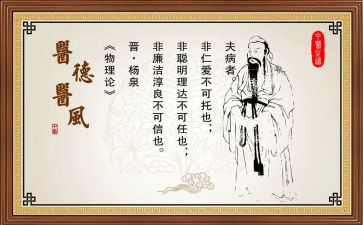 醫德醫風
夫病者。
非仁爱不可托也；
非聪明理达不可任也；
非廉洁淳良不可信也。
晋·杨泉
《物理论》